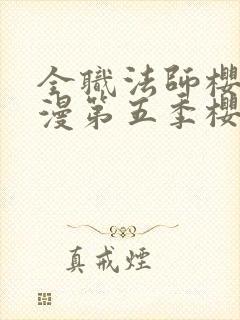 全職法師櫻
漫第五季櫻
真戒煙